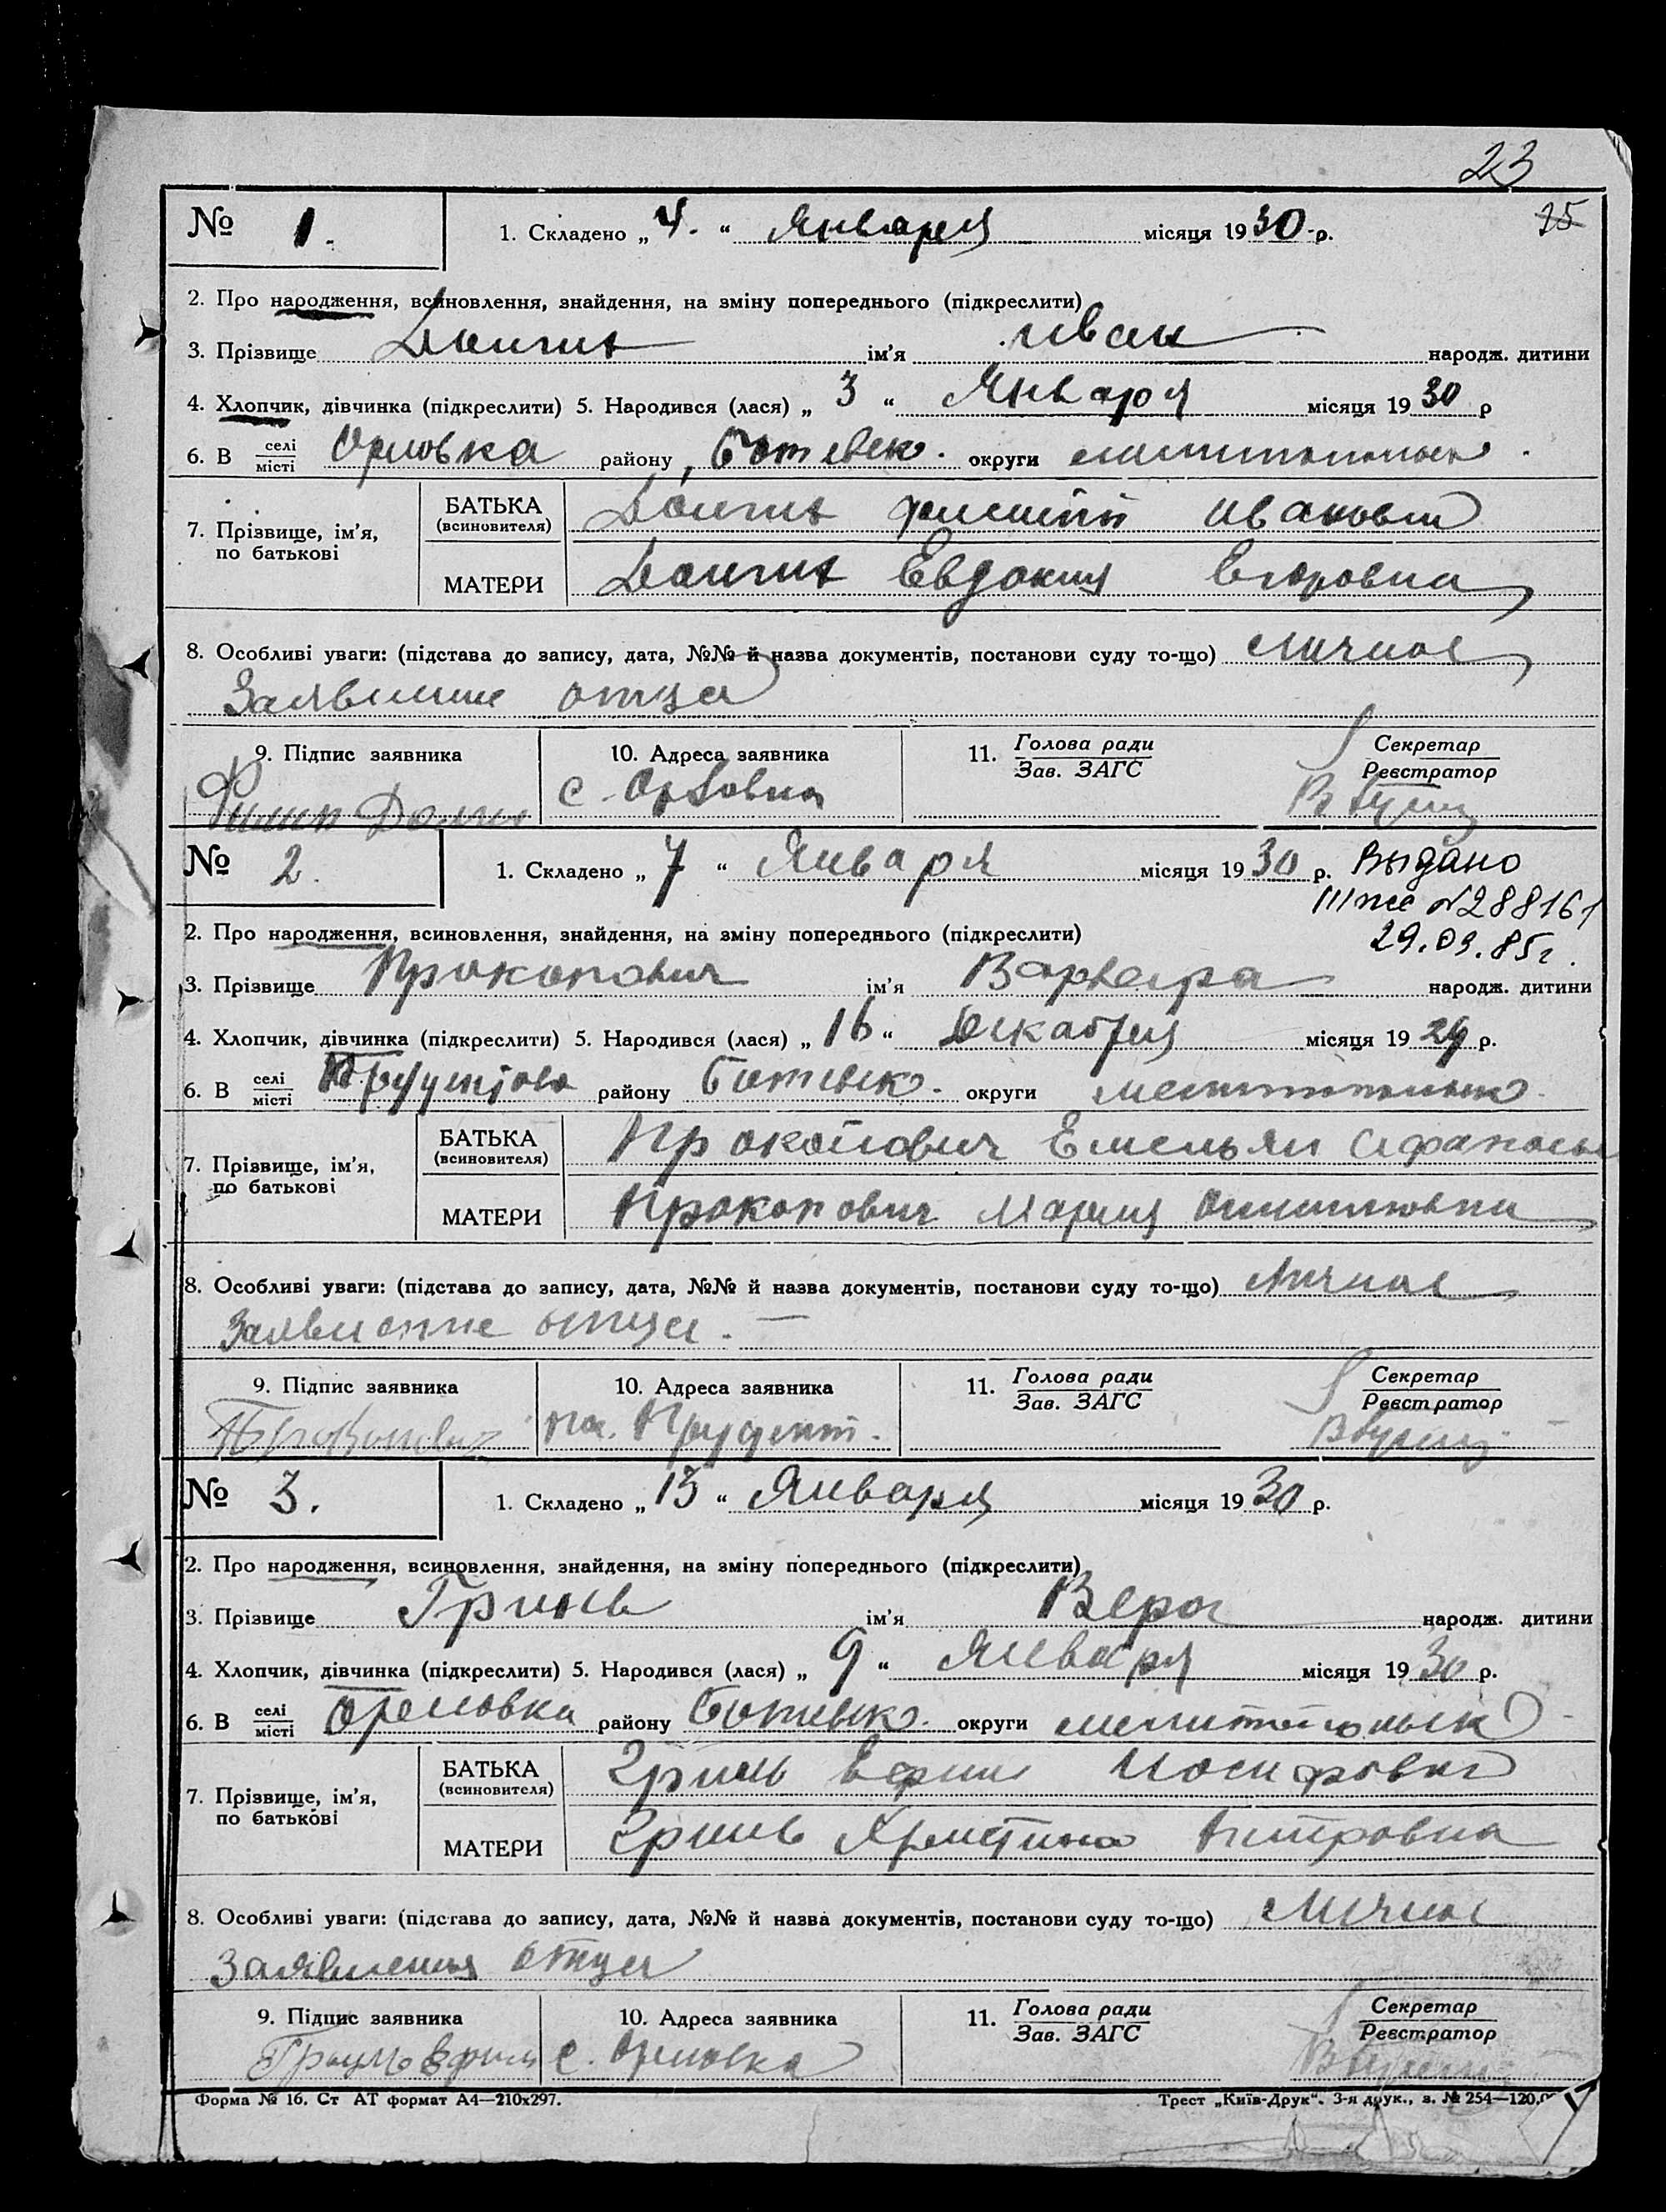 23
25
№ 1. 1. Складено „ 4. “ Января місяця 1930 р.
2. Про народження, всиновлення, знайдення, на зміну попереднього (підкреслити)
3. Прізвище Долгих ім'я Иван народж. дитини
4. Хлопчик, дівчинка (підкреслити) 5. Народився (лася) „ 3 “ Января місяця 1930 р
6. В селі/місті Орловка району Ботиевск. округи Мелитопольск.
7. Прізвище, ім'я, по батькові
БАТЬКА (всиновителя) Иванович
МАТЕРИ Евдокия Егоровна
8. Особливі уваги: (підстава до запису, дата, №№ й назва документів, постанови суду то-що) Личное
Заявление отца
9. Підпис заявника 10. Адреса заявника 11. Голова ради/Зав. ЗАГС Секретар/Реєстратор
Филип с. Орловка
№ 2. 1. Складено „ 7 “ Января місяця 1930 р. Выдано
№288161
29.03.85г.
2. Про народження, всиновлення, знайдення, на зміну попереднього (підкреслити)
3. Прізвище Прокопович ім'я Варвара народж. дитини
4. Хлопчик, дівчинка (підкреслити) 5. Народився (лася) „ 16 “ Декабря місяця 1929 р.
6. В селі/місті району Ботиевск. округи Мелитопольск.
7. Прізвище, ім'я, по батькові
БАТЬКА (всиновителя) Прокопович Емельян
МАТЕРИ Прокопович Мария
8. Особливі уваги: (підстава до запису, дата, №№ й назва документів, постанови суду то-що) Личное
Заявление отца. —
9. Підпис заявника 10. Адреса заявника 11. Голова ради/Зав. ЗАГС Секретар/Реєстратор
№ 3. 1. Складено „ 13 “ Января місяця 1930 р.
2. Про народження, всиновлення, знайдення, на зміну попереднього (підкреслити)
3. Прізвище Гринь ім'я Вера народж. дитини
4. Хлопчик, дівчинка (підкреслити) 5. Народився (лася) „ 9 “ Января місяця 1930 р.
6. В селі/місті Орловка району Ботиевск. округи Мелитопольск.
7. Прізвище, ім'я, по батькові
БАТЬКА (всиновителя) Гринь Ефим
МАТЕРИ Гринь Христина
8. Особливі уваги: (підстава до запису, дата, №№ й назва документів, постанови суду то-що) Личное
Заявления отца
9. Підпис заявника 10. Адреса заявника 11. Голова ради/Зав. ЗАГС Секретар/Реєстратор
с. Орловка
Форма № 16. Ст АТ формат А4—210х297. Трест „Київ-Друк“. 3-я друк., з. № 254—120.0